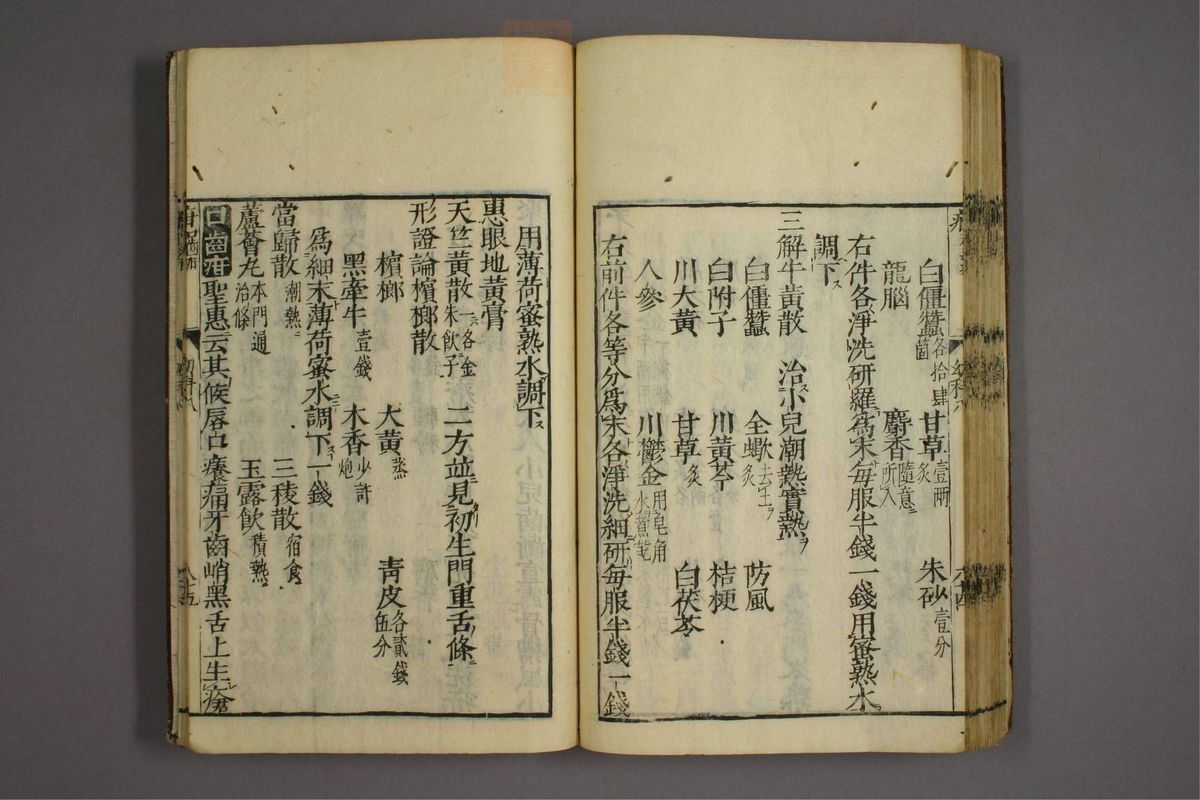 白僵蠶各拾肆箇　甘草壹兩炙　朱砂壹分
龍腦　麝香隨意所入
右件各淨洗研羅爲末每服半錢一錢用蜜熟水
調下ス
三解牛黃散　治小兒潮熱實熱ヲ
白僵蠶　全蠍去土ヲ炙　防風
白附子　川黃芩　桔梗
川大黃　甘草炙　白茯苓
人參　川鬱金用皂角水煑乾
右前件各等分爲末各淨洗細研每服半錢一錢
用薄荷蜜熟水調下ス
惠眼地黃膏
天竺黃散一名金朱飲子　二方並見初生門重舌條
形證論檳榔散
檳榔　大黃蒸　靑皮各貳錢伍分
黑牽牛壹錢　木香少許炮
爲細末薄荷蜜水調下一錢
當歸散潮熱　三稜散宿食
蘆薈丸本門通治條　玉露飲積熱
口齒疳聖惠云其候唇口癢痛牙齒峭黑舌上生瘡